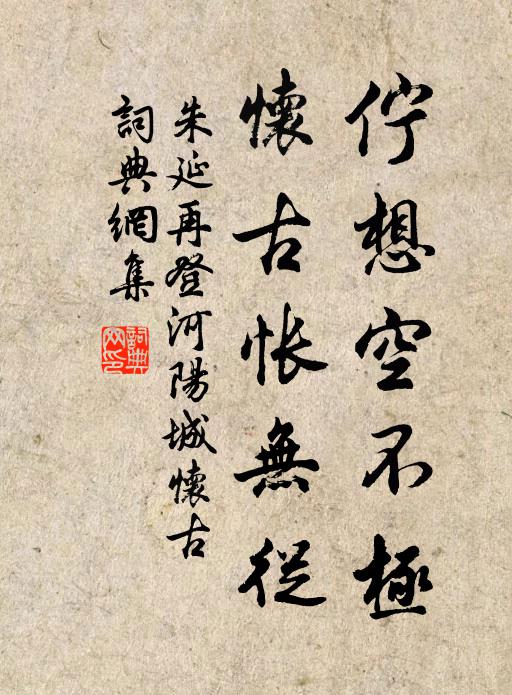 佇想空不極
懷古悵無從
朱延再登河陽城懷古
詞典網集
詞典
网印